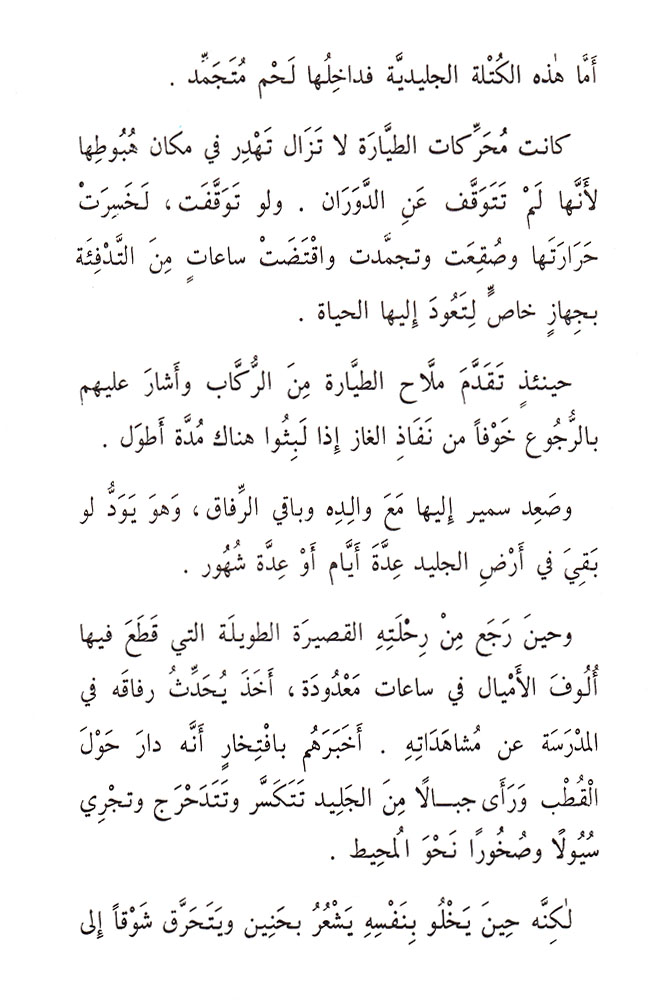 أَمَّا هٰذه الكُتْلة الجليديَّة فداخِلُها لَحْم مُتَجَمِّد .
كانت مُحَرِّكات الطيَّارَة لا تَزَال تَهْدِر في مكان هُبُوطِها
لأَنَّها لَمْ تَتَوَقَّف عَنِ الدَّوَرَان . ولو تَوَقَّفَت ، لَخَسِرَتْ
حَرَارَتَها وصُقِعَت وتجمَّدت واقْتَضَتْ ساعاتٍ مِنَ التَّدْفِئَة
بجِهازٍ خاصٍّ لِتَعُودَ إليها الحياة .
حينئذٍ تَقَدَّمَ ملَّاح الطيَّارة مِنَ الرُّكَّاب وأَشارَ عليهم
بالرُّجُوع خَوْفاً من نَفَاذِ الغاز إذا لَبِثُوا هناك مُدَّة أَطوَل .
وصَعِد سمير إليها مَعَ والِدِه وباقي الرِّفاق ، وَهوَ يَوَدُّ لو
بَقِيَ في أَرْضِ الجليد عِدَّةَ أَيَّام أَوْ عِدَّة شُهُور .
وحينَ رَجَع مِنْ رِحْلَتِهِ القصيرَة الطويلَة التي قَطَعَ فيها
أُلُوفَ الأَمْيال في ساعات مَعْدُودَة ، أَخَذَ يُحَدِّثُ رفاقَه في
المدْرَسَة عن مُشاهَدَاتِهِ . أَخبَرَهُم بافْتِخارٍ أَنَّه دارَ حَوْلَ
الْقُطْب وَرَأَى جبـالًا مِنَ الجَلِيد تَتَكَسَّر وتَتَدَحْرَج وتجْرِي
سُيُولًا وصُخُورًا نَحْوَ المُحِيط .
لٰكِنَّه حِينَ يَخْلُو بِنَفْسِهِ يَشْعُرُ بحَنِين ويَتَحَرَّق شَوْقاً إلى